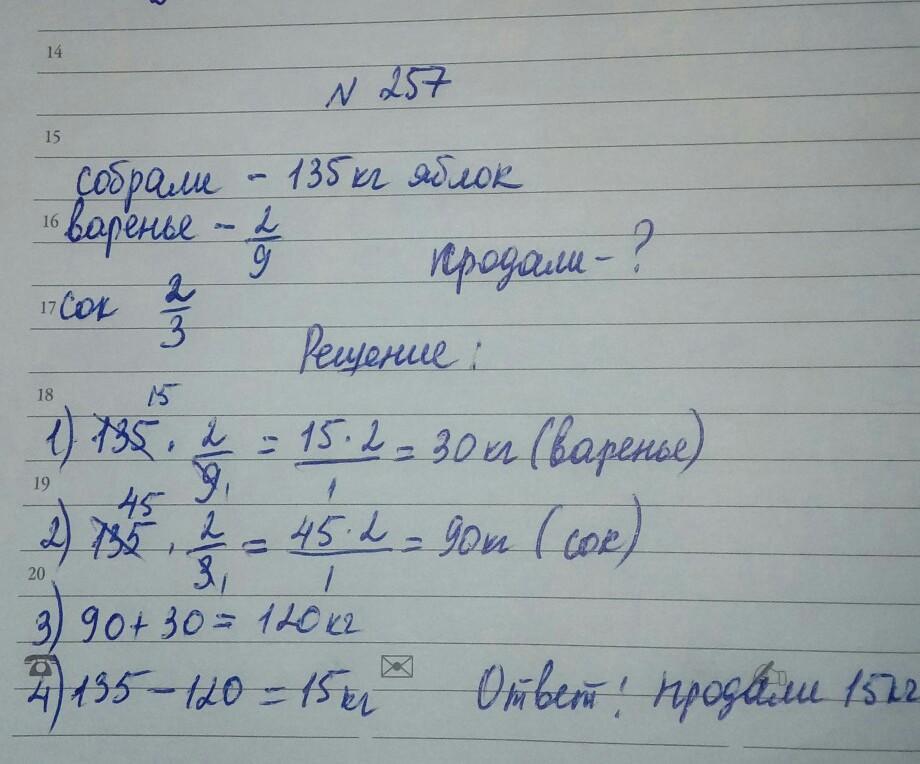 14
N 257
15
собрали - 135кг яблок
16 варенье - 2/9
продали - ?
17 сок 2/3
Решение:
18
15
1) 135 · 2/9 1 = 15·2/1 = 30кг (варенье)
19
45
2) 135 · 2/3 1 = 45·2/1 = 90кг (сок)
20
3) 90 + 30 = 120кг
4) 135 - 120 = 15кг Ответ: продали 15кг